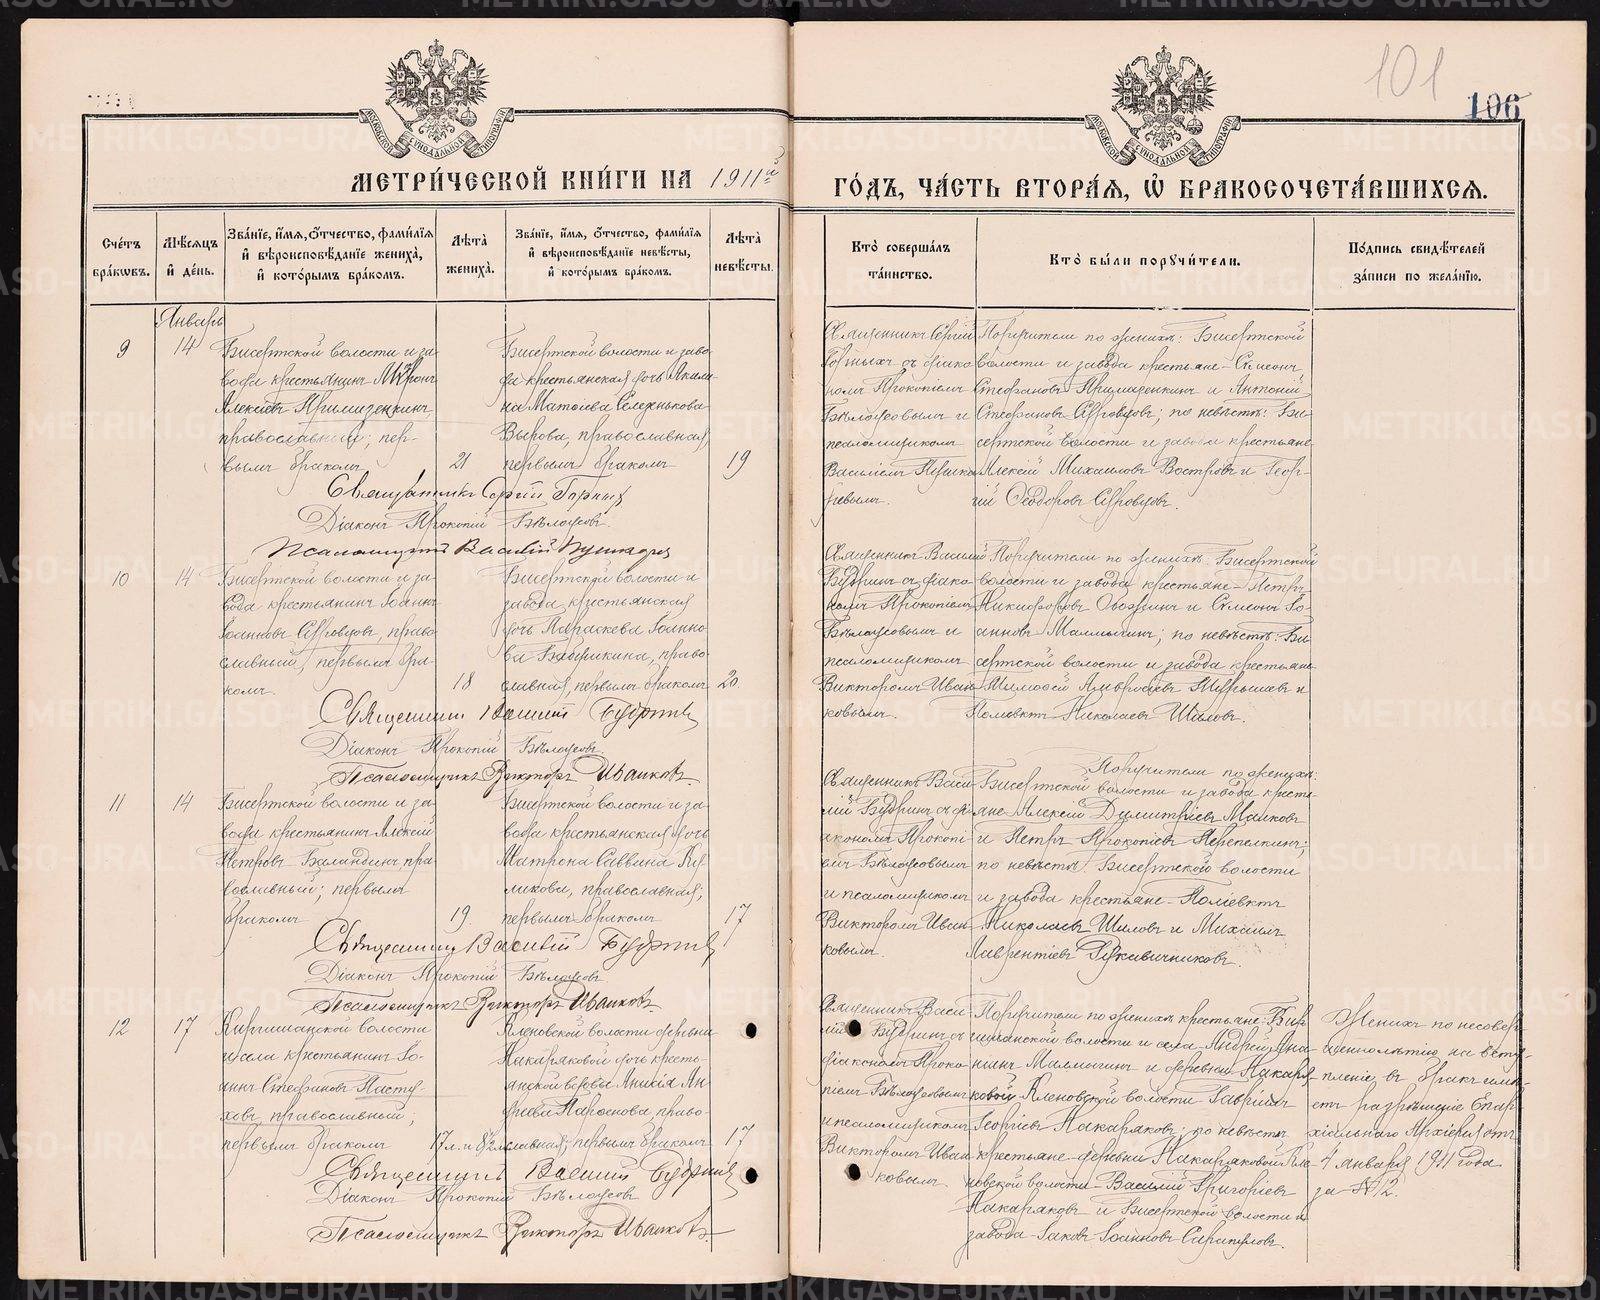 101
106
МЕТРИ́ЧЕСКОЙ КНИ́ГИ НА 1911й
ГО́ДЪ, ЧА́СТЬ ВТОРА́Я, Ѿ БРАКОСОЧЕТА́ВШИХСЯ.
Сче́тъ бра́кωвъ.
Мѣ́сяцъ и҆ де́нь.
Зва́нїе, и҆́мя, ѻ҆́тчество, фами́лїя
и҆ вѣроисповѣ́данїе жениха̀,
и҆ кото́рымъ бра́комъ.
Лѣ́та̀ жениха̀.
Зва́нїе, и҆́мя, ѻ҆́тчество, фами́лїя
и҆ вѣроисповѣ́данїе невѣ́сты,
и҆ кото́рымъ бра́комъ.
Лѣ́та̀ невѣ́сты.
Кто̀ соверша́лъ та́инство.
Кто̀ бы́ли порꙋчи́тели.
По́дпись свидѣ́телей за́писи по жела́нїю.
Январь
9
14
Бисертской волости и за-
вода крестьянинъ Мѵронъ
Алексіевъ
православный; пер-
вымъ бракомъ
21
Бисертской волости и заво-
да крестьянская дочь Акили-
на Матѳіева Селезнькова
Вырова, православная,
первымъ бракомъ
19
Священникъ Сергій
Горныхъ съ діако-
номъ Прокопіемъ
Бѣлоусовымъ и
псаломщикомъ
Василіемъ
Поручители по женихѣ: Бисертской
волости и завода крестьяне – Сѵмеонъ
Стефановъ и Антоній
Стефановъ; по невѣстѣ: Би-
сертской волости и завода крестьяне
Алексій Михаиловъ Востровъ и Геор-
гій Ѳеодоровъ
Священникъ Сергій Горныхъ
Діаконъ Прокопій Бѣлоусовъ.
Псаломщикъ Василій
10
14
Бисертской волости и за-
вода крестьянинъ Іоаннъ
Іоанновъ, право-
славный, первымъ бра-
комъ.
18
Бисертской волости и
завода крестьянская
дочь Параскева Іоанно-
ва Бабушкина, право-
славная, первымъ бракомъ
20.
Священникъ Василій
Будринъ съ діако-
номъ Прокопіемъ
Бѣлоусовымъ и
псаломщикомъ
Викторомъ Иван-
ковымъ.
Поручители по женихѣ: Бисертской
волости и завода крестьяне – Петръ
Никифоровъ и Сѵмеонъ Іо-
анновъ Малмыгинъ; по невѣстѣ: Би-
сертской волости и завода крестьяне
Тимофей Амвросіевъ и
Поліевктъ Николаевъ Шиловъ.
Священникъ Василій Будринъ
Діаконъ Прокопій Бѣлоусовъ.
Псаломщикъ Викторъ Иванковъ.
11
14
Бисертской волости и за-
вода крестьянинъ Алексій
Петровъ Баландинъ, пра-
вославный; первымъ
бракомъ
19
Бисертской волости и за-
вода крестьянская дочь
Матрона Саввина Ку-
ликова, православная;
первымъ бракомъ
17
Священникъ Васи-
лій Будринъ съ ді-
акономъ Прокопі-
емъ Бѣлоусовымъ
и псаломщикомъ
Викторомъ Иван-
ковымъ.
Поручители по женихѣ:
Бисертской волости и завода кресть-
яне Алексій Димитріевъ Манковъ
и Петръ Прокопіевъ Перепелкинъ;
по невѣстѣ: Бисертской волости
и завода крестьяне – Поліевктъ
Николаевъ Шиловъ и Михаилъ
Лаврентіевъ Рукавичниковъ.
Священникъ Василій Будринъ
Діаконъ Прокопій Бѣлоусовъ
Псаломщикъ Викторъ Иванковъ.
12
17
Киргишанской волости
и села крестьянинъ Іо-
аннъ Стефановъ Пасту-
ховъ, православный;
первымъ бракомъ
17 л. и 8½ м.
Кленовской волости деревни
Накаряковой дочь кресть-
янской вдовы Анисія Ан-
дреева, право-
славная; первымъ бракомъ
17
Священникъ Васи-
лій Будринъ съ
діакономъ Проко-
піемъ Бѣлоусовымъ
и псаломщикомъ
Викторомъ Иван-
ковымъ.
Поручители по женихѣ крестьяне: Кир-
гишанской волости и села – Андрей Ана-
ніинъ Малмыгинъ и деревни Накаря-
ковой Кленовской волости Гавріилъ
Георгіевъ Накаряковъ; по невѣстѣ
крестьяне – деревни Накаряковой Кле-
новской волости – Василій Григоріевъ
Накаряковъ и Бисертской волости и
завода – Іаковъ Іоанновъ Сарапуловъ.
Женихъ по несовер-
шеннолѣтію на всту-
пленіе въ бракъ имѣ-
етъ разрѣшеніе Епар-
хіальнаго Архіерея отъ
4 января 1911 года
за №12.
Священникъ Василій Будринъ
Діаконъ Прокопій Бѣлоусовъ
Псаломщикъ Викторъ Иванковъ.
METRIKI.GASO-URAL.RU